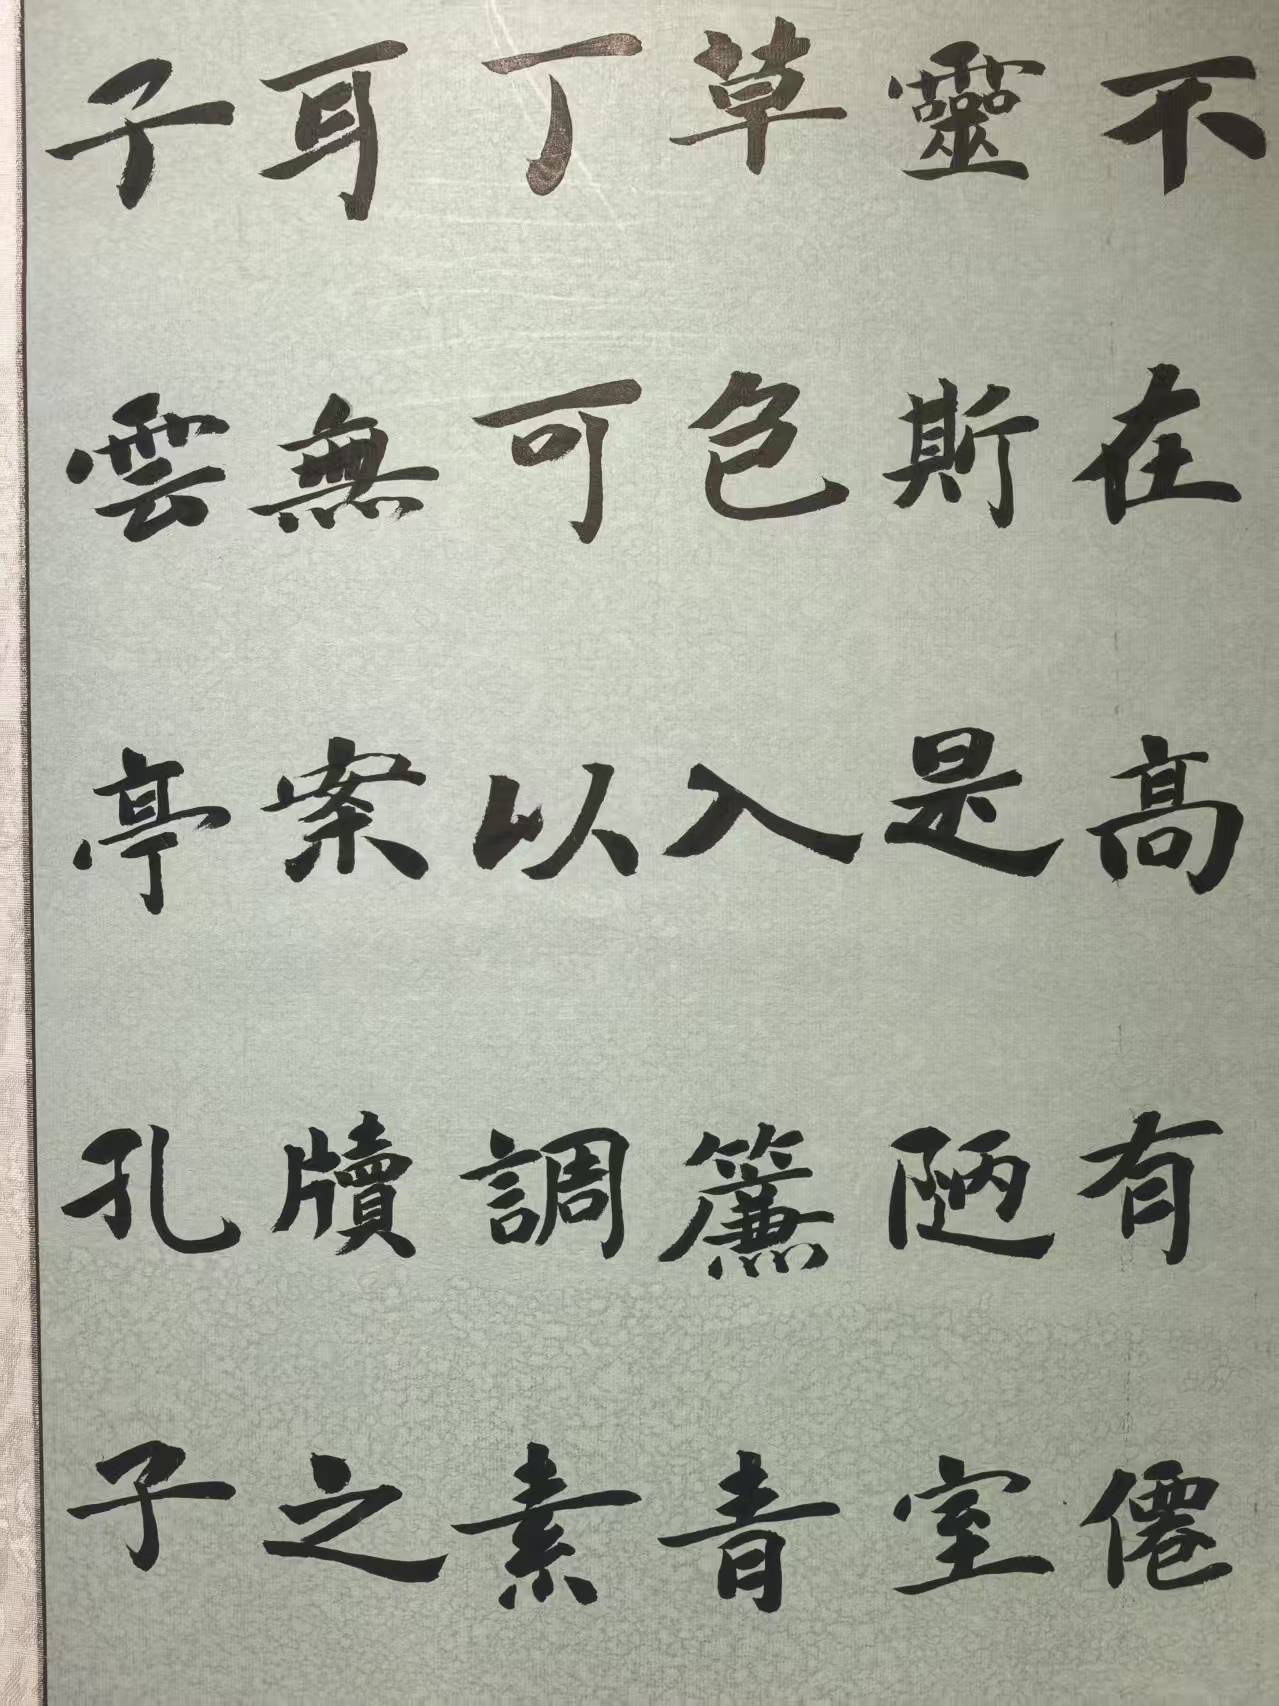 不在高有僊
靈斯是陋室
草色入簾青
丁可以調素
耳無案牘之
子雲亭孔子